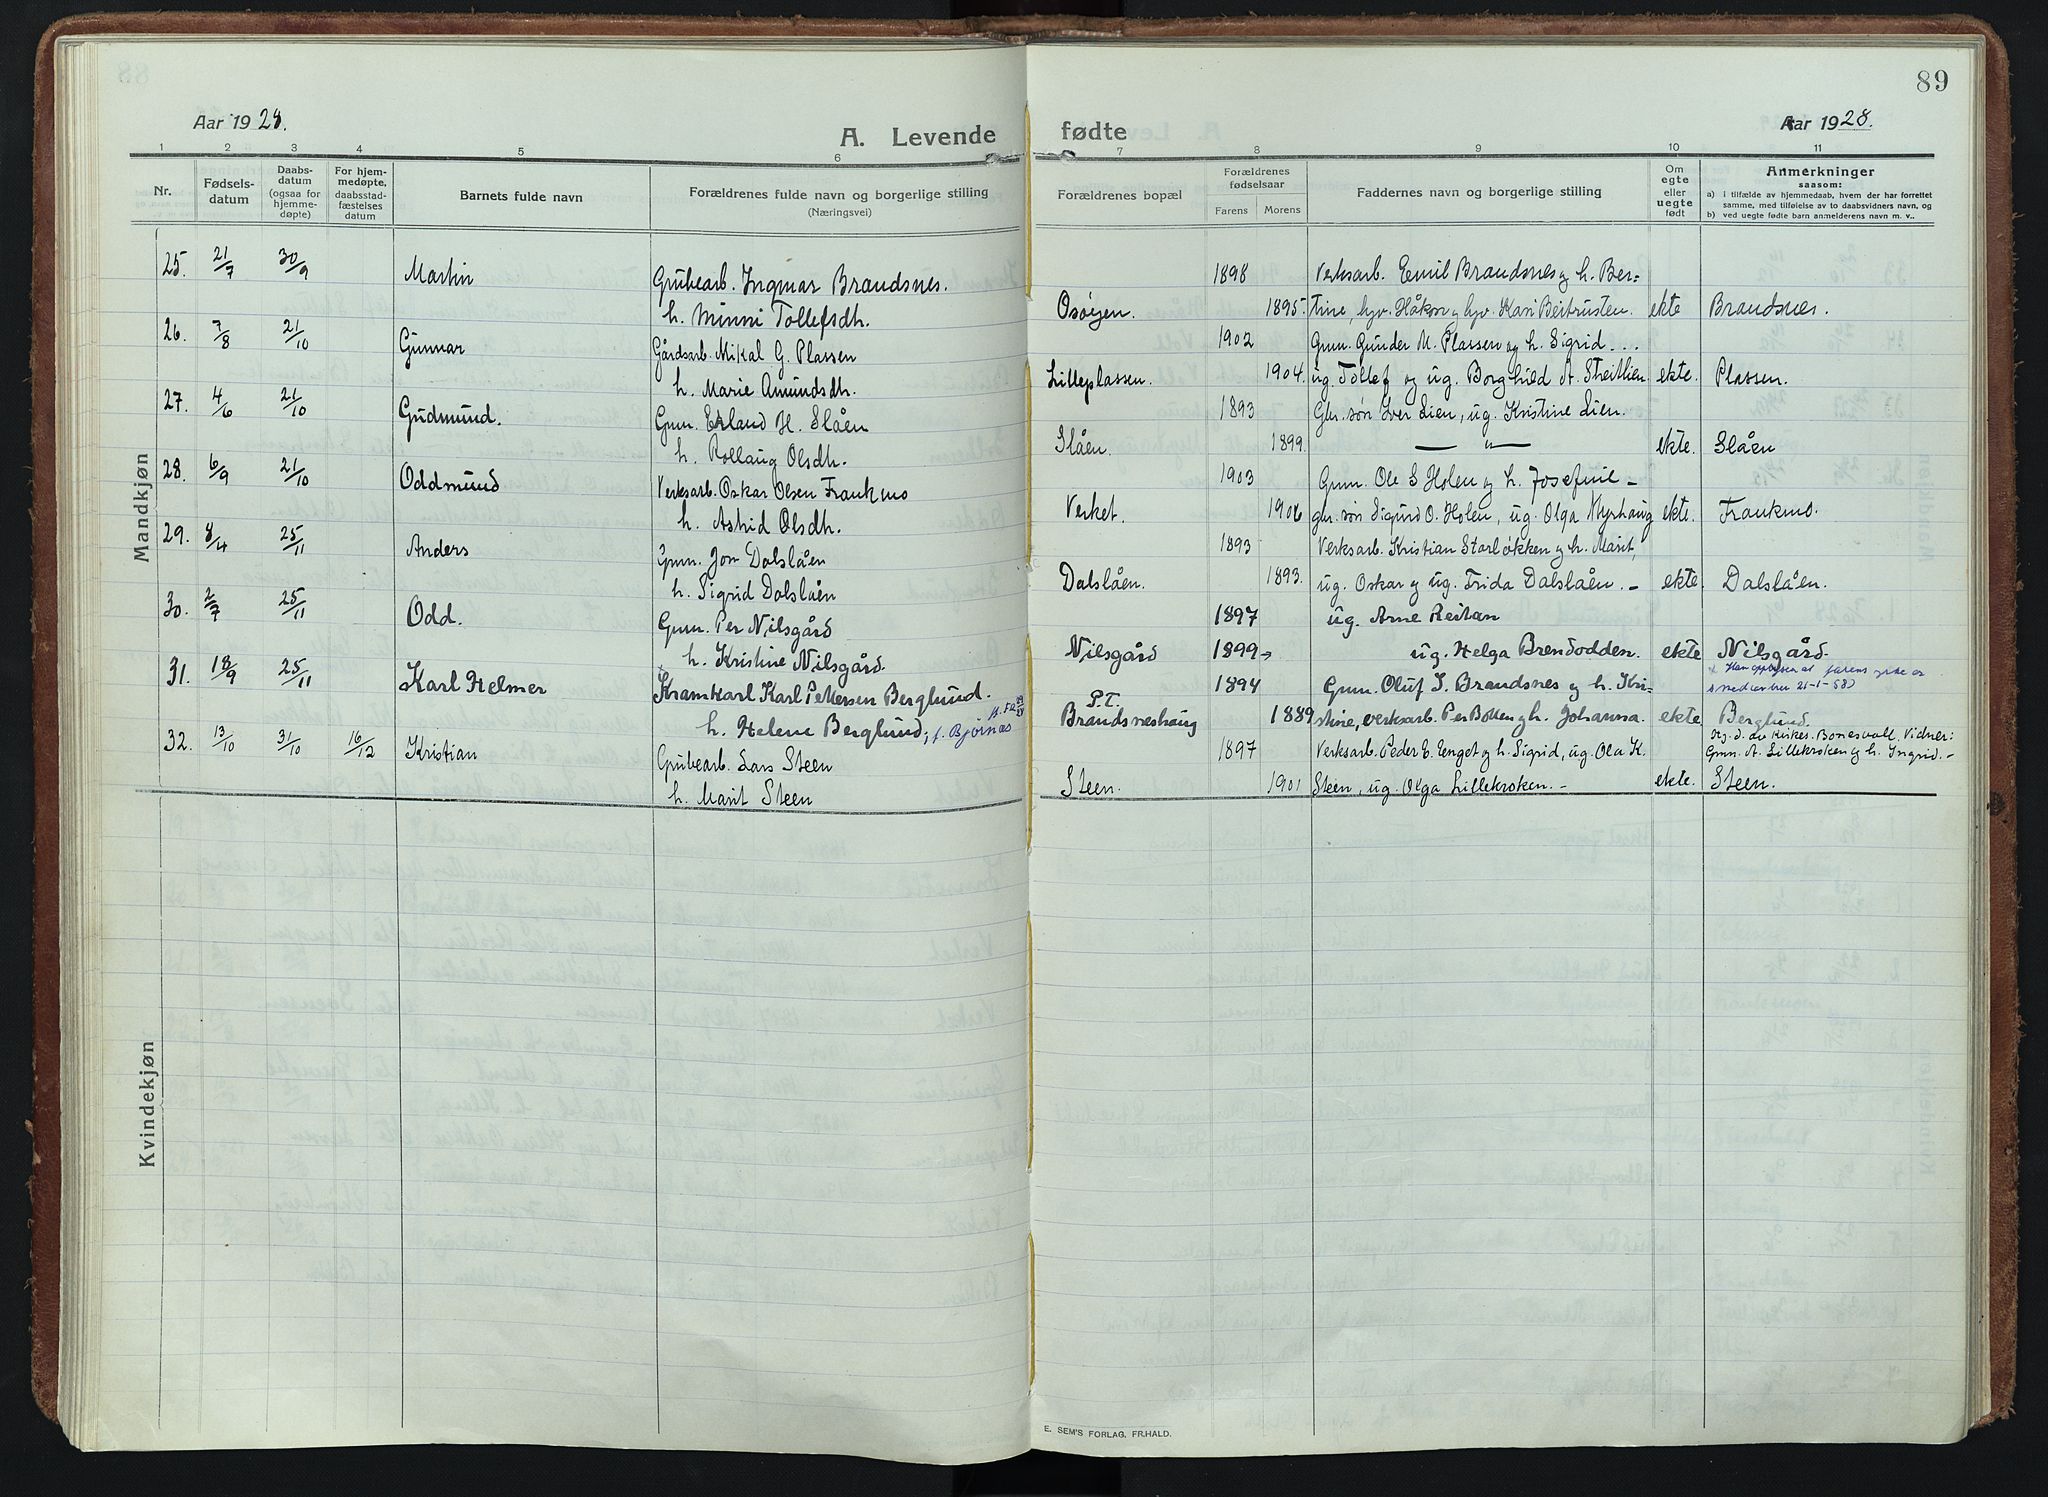 89
Aar 1928.
A. Levende fødte
Aar 1928.
1 2 3 4 5 6 7 8 9 10 11
Nr.
Fødsels-
datum
Daabs-
datum
(ogsaa for
hjemme-
døpte)
For hjem-
medøpte,
daabsstad-
fæstelses
datum
Barnets fulde navn
Forældrenes fulde navn og borgerlige stilling
(Næringsvei)
Forældrenes bopæl
Forældrenes
fødselsaar
Farens Morens
Faddernes navn og borgerlige stilling
Om
egte
eller
uegte
født
Anmerkninger
saasom:
a) i tilfælde av hjemmedaab, hvem der har forrettet
samme, med tilføielse av to daabsvidners navn, og
b) ved uegte fødte barn anmelderens navn m. v..
Mandkjøn
25. 21/7 30/9 Martin Grubearb. Ingmar Brandsnes. 1898 Verksarb. Emil Brandsnes og h. Ber-
h. Minni Tollefsdh. Osøyen. 1895. tine, hyv. Håkon og hyv. Kari Beitrusten. ekte Brandsnes.
26. 7/8 21/10 Gunnar Gårdsarb. Mikal G. Plassen 1902 Gmn. Gunder M. Plassen og h. Sigrid...
h. Marie Amundsdh. Lilleplassen. 1904. ug. Tollef og ug. Borghild A. Streitlien ekte. Plassen.
27. 4/6 21/10 Gudmund. Gmn. Erland H. Slåen 1893 Gbr. søn Iver Lien, ug. Kristine Lien.
h. Rollaug Olsdh. Slåen. 1899. — " — ekte. Slåen
28. 6/9 21/10 Oddmund Verksarb. Oskar Olsen Frankmo 1903 Gmn. Ole S Holen og h. Josefine -
h. Astrid Olsdh. Verket. 1906 gbr. søn Sigurd O. Holen, ug. Olga Myrhaug ekte. Frankmo.
29. 8/4 25/11 Anders Gmn. Jon Dalslåen 1893 Verksarb. Kristian Starløkken og h. Marit,
h. Sigrid Dalslåen Dalslåen. 1893. ug. Oskar og ug. Frida Dalslåen. - ekte. Dalslåen.
30. 2/7 25/11 Odd. Gmn. Per Nilsgård 1897 ug. Arne Reitan
h. Kristine Nilsgård. Nilsgård 1899 ug. Helga Brendodden. ekte Nilsgård.
31. 18/9 25/11 Karl Helmer Kramkarl Karl Pettersen Berglund. 1894 Gmn. Oluf S. Brandsnes og h. Kri-
h. Helene Berglund, f. Bjørnås P.T. Brandsneshaug 1889 stine, verksarb. Per Botten og h. Johanna. ekte Berglund.
32. 13/10 31/10 16/12 Kristian Grubearb. Lars Steen 1897 Verksarb. Peder E. Enget og h. Sigrid, ug. Ola K. Hj. d. av kirkes. Bonesvoll. Vidner:
Gmn. A. Lillekroken og h. Ingrid.-
h. Marit Steen Steen. 1901 Steen, ug. Olga Lillekroken. - ekte. Steen.
Kvindekjøn
E. SEM'S FORLAG, FR.HALD.